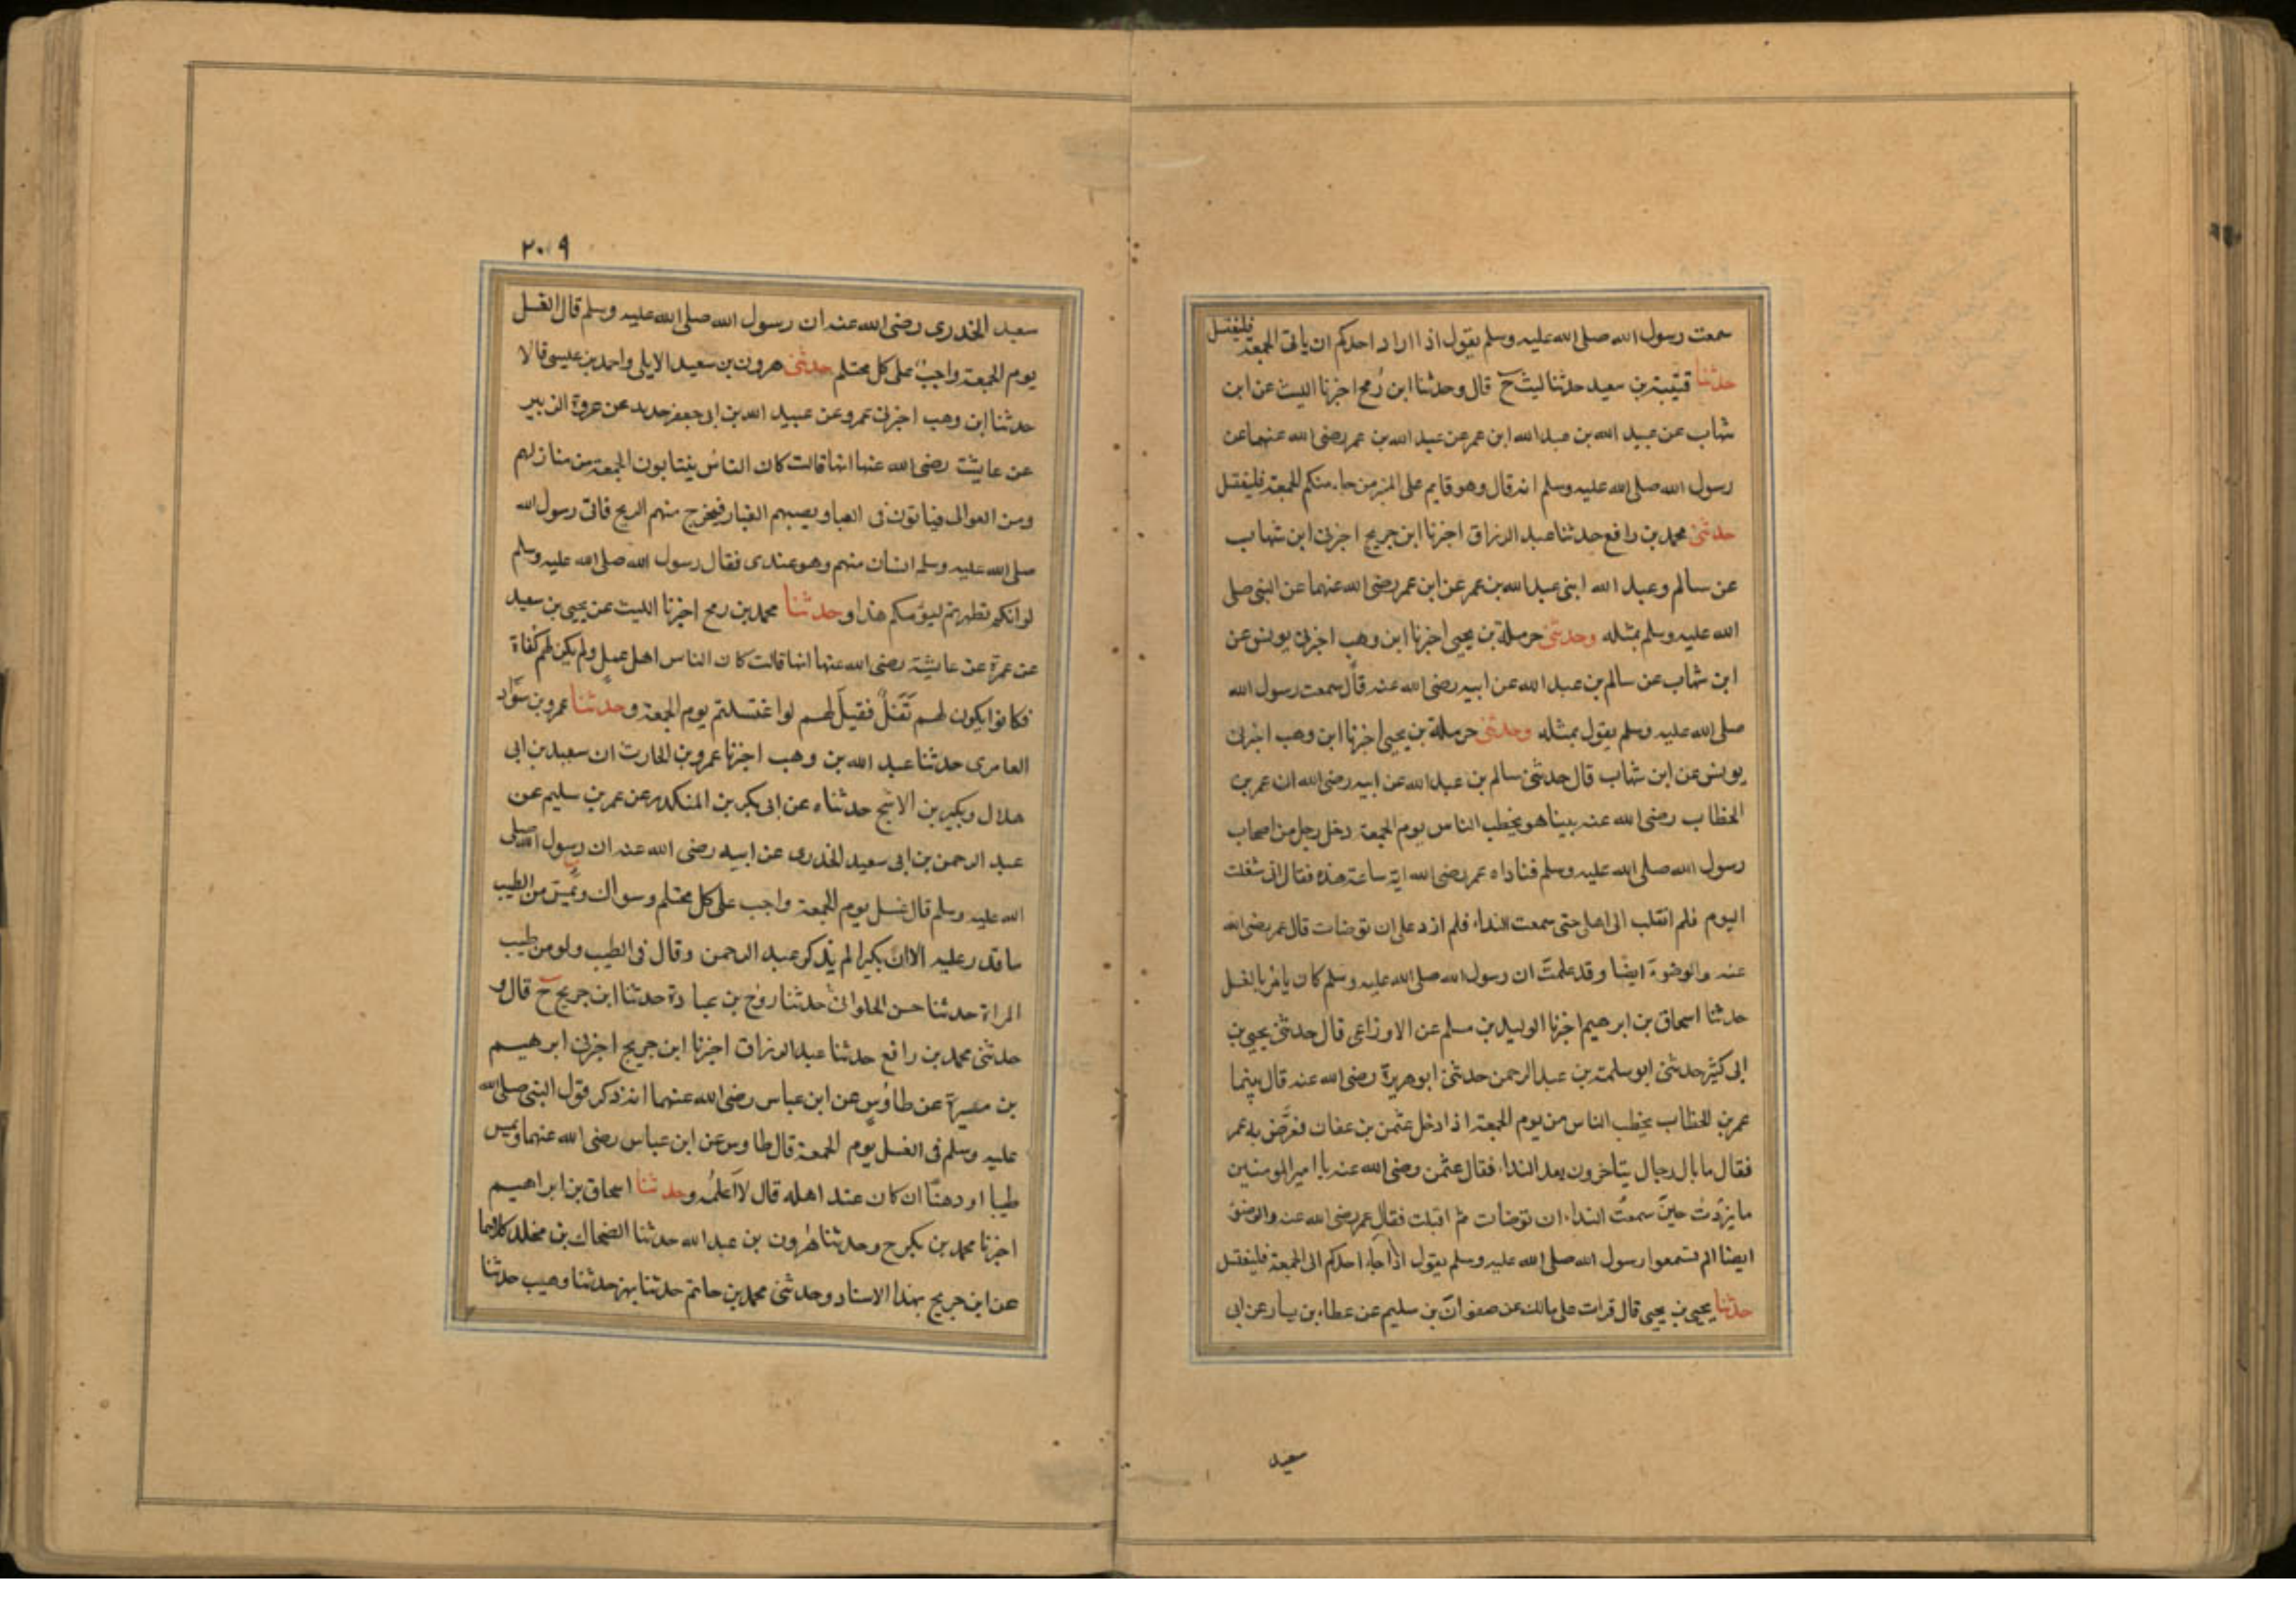 سمعت رسول الله صلى الله عليه وسلم يقول اذا اراد احدكم ان ياتى الجمعة فليغتسل
حدثنا قتيبة بن سعيد حدثنا ليث ح قال وحدثنا ابن رُمح اخبرنا الليث عن ابن
شهاب عن عبيد الله بن عبد الله ابن عمر عن عبد الله بن عمر رضى الله عنهما عن
رسول الله صلى الله عليه وسلم انه قال وهو قايم على المنبر من جاء منكم الجمعة فليغتسل
حدثنى محمد بن رافع حدثنا عبد الرزاق اخبرنا ابن جريج اخبرنى ابن شهاب
عن سالم وعبد الله ابنى عبد الله بن عمر عن ابن عمر رضى الله عنهما عن النبى صلى
الله عليه وسلم بمثله وحدثنى حرملة بن يحيى اخبرنا ابن وهب اخبرنى يونس عن
ابن شهاب عن سالم بن عبد الله عن ابيه رضى الله عنه قال سمعت رسول الله
صلى الله عليه وسلم يقول بمثله وحدثنى حرملة بن يحيى اخبرنا ابن وهب اخبرنى
يونس عن ابن شهاب قال حدثنى سالم بن عبد الله عن ابيه رضى الله ان عمر بن
الخطاب رضى الله عنه بينا هو يخطب الناس يوم الجمعة دخل رجل من اصحاب
رسول الله صلى الله عليه وسلم فناداه عمر رضى الله اية ساعة هذه فقال انى شغلت
اليوم فلم انقلب الى اهلى حتى سمعت النداء فلم ازد على ان توضات قال عمر رضى الله
عنه والوضوءَ ايضا وقد علمتَ ان رسول الله صلى الله عليه وسلم كان يامُر بالغسل
حدثنا اسحاق بن ابرهيم اخبرنا الوليد بن مسلم عن الاوزاعى قال حدثنى يحيى بن
ابى كثير حدثنى ابو سلمة بن عبد الرحمن حدثنى ابو هريرة رضى الله عنه قال بينما
عمر بن الخطاب يخطب الناس من يوم الجمعة اذ ادخل عثمن بن عفان فعرَّض به عمر
فقال ما بال رجال يتاخرون بعد النداء فقال عثمن رضى الله عنه يا امير المومنين
ما يزدتُ حين سمعتُ النداء ان توضات ثم اقبلت فقال عمر رضى الله عنه والوضوء
ايضا الم تسمعوا رسول الله صلى الله عليه وسلم يقول اذا جاء احدكم الى الجمعة فليغتسل
حدثنا يحيى بن يحيى قال قرات على مالك عن صفوان بن سليم عن عطاء بن يسار عن ابى
سعيد
٢٠٩
سعيد الخدرى رضى الله عنه ان رسول الله صلى الله عليه وسلم قال الغسل
يوم الجمعة واجبٌ على كل محتلم حدثنى هرون بن سعيد الايلى واحمد بن عيسى قالا
حدثنا ابن وهب اخبرنى عمرو عن عبيد الله بن ابى جعفر حديد عن عروة الزبير
عن عايشة رضى الله عنها انها قالت كان الناسُ ينتابون الجمعة من منازلهم
ومن العوالى فياتون فى العبا ويصيبهم الغبار فيخرج منهم الريح فاتى رسول الله
صلى الله عليه وسلم انسان منهم وهو عندى فقال رسول الله صلى الله عليه وسلم
لو انكم تطهرتم ليومكم هذا وحدثنا محمد بن رمح اخبرنا الليث عن يحيى بن سعيد
عن عمرة عن عايشة رضى الله عنها انها قالت كان الناس اهل عمل ولم يكن لهم كُفاة
فكانوا يكون لهم تَفَلٌ فقيل لهم لو اغتسلتم يوم الجمعة وحدثنا عمرو بن سوّاد
العامرى حدثنا عبد الله بن وهب اخبرنا عمرو بن الحارث ان سعيد بن ابى
هلال وبكير بن الاشج حدثناه عن ابى بكر بن المنكدر عن عمر بن سليم عن
عبد الرحمن بن ابى سعيد الخدرى عن ابيه رضى الله عنه ان رسول الله صلى
الله عليه وسلم قال غسل يوم الجمعة واجب على كل محتلم وسواك ويَمَسّ من الطيب
ما قدر عليه الا ان بكيرا لم يذكر عبد الرحمن وقال فى الطيب ولو من طيب
المراة حدثنا حسن الحلوانى حدثنا روح بن عبادة حدثنا ابن جريج ح قال و
حدثنى محمد بن رافع حدثنا عبد الرزاق اخبرنا ابن جريج اخبرنى ابرهيم
بن ميسرة عن طاوس عن ابن عباس رضى الله عنهما انه ذكر قول النبى صلى الله
عليه وسلم فى الغسل يوم الجمعة قال طاوس عن ابن عباس رضى الله عنهما ويمس
طيبا او دهنًا ان كان عند اهله قال لا اَعلمُه وحدثنا اسحاق بن ابراهيم
اخبرنا محمد بن بكر ح وحدثنا هٰرون بن عبد الله حدثنا الضحاك بن مخلد كلاهما
عن ابن جريج بهذا الاسناد وحدثنى محمد بن حاتم حدثنا بهز حدثنا وهيب حدثنا